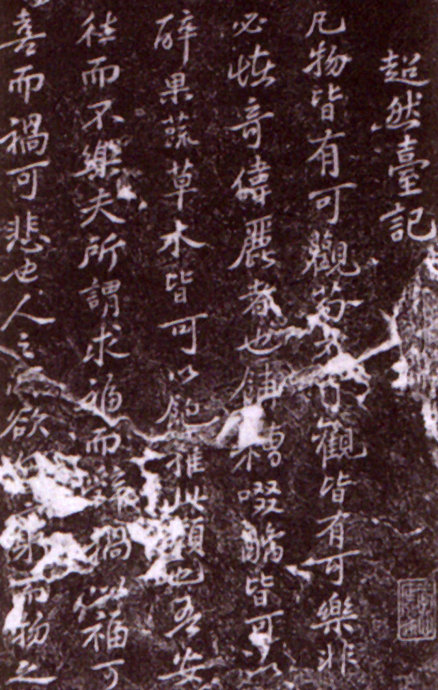 超然臺記
凡物皆有可觀苟有可觀皆有可樂非
必怪奇偉麗者也餔糟啜醨皆可以
醉果蔬草木皆可以飽推此類也吾安
往而不樂夫所謂求福而辭禍以福可
喜而禍可悲也人之所欲窮而物之